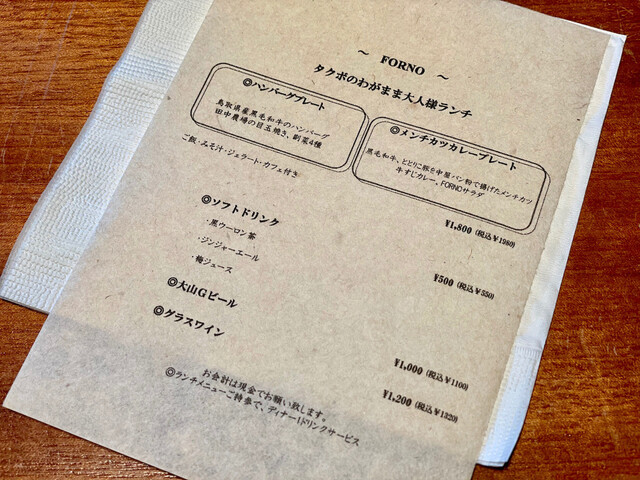 ～ FORNO ～
タクボのわがまま大人様ランチ
◎ハンバーグプレート
鳥取県産黒毛和牛のハンバーグ
田中農場の目玉焼き、副菜4種
◎メンチカツカレープレート
黒毛和牛、ととりこ豚を中屋パン粉で揚げたメンチカツ
牛すじカレー。FORNOサラダ
ご飯・みそ汁・ジェラート・カフェ付き
¥1,800 (税込¥1980)
◎ソフトドリンク
・黒ウーロン茶
・ジンジャーエール
・梅ジュース
¥500 (税込¥550)
◎大山Gビール
¥1,000 (税込¥1100)
◎グラスワイン
¥1,200 (税込¥1320)
お会計は現金でお願い致します。
◎ランチメニューご持参で、ディナー1ドリンクサービス